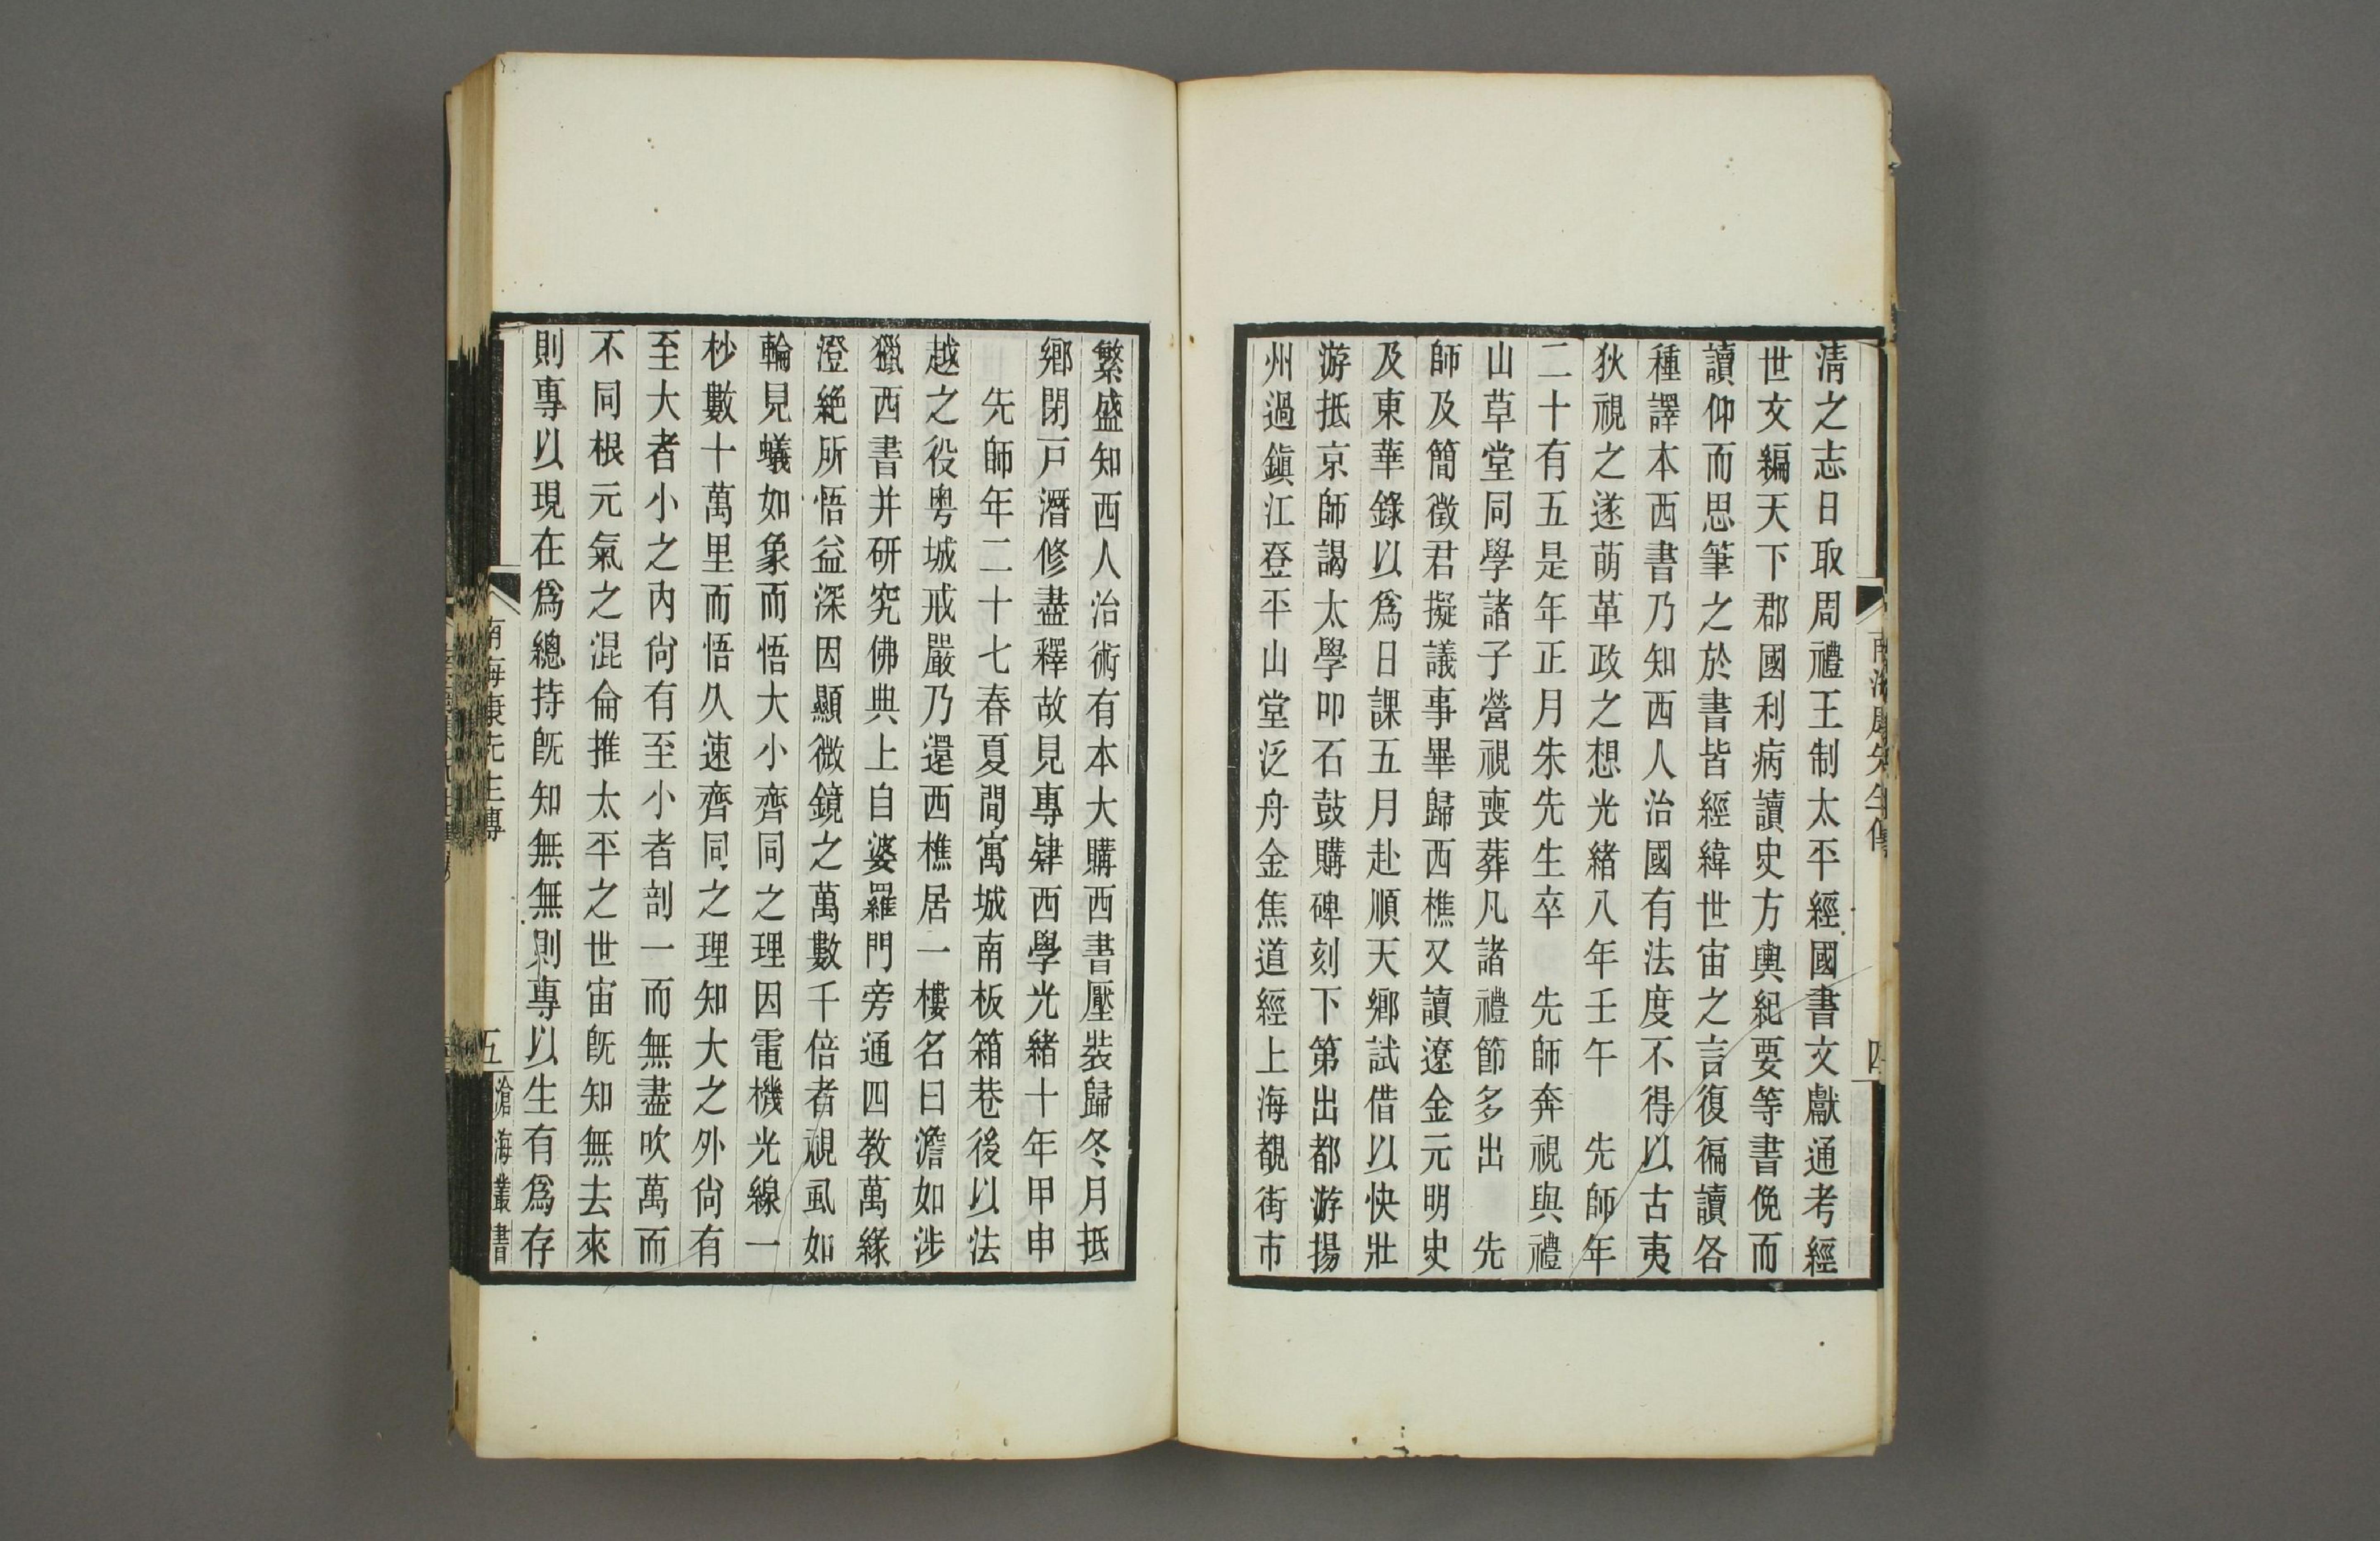 清之志日取周禮王制太平經國書文獻通考經
世文編天下郡國利病讀史方輿紀要等書俛而
讀仰而思筆之於書皆經緯世宙之言復徧讀各
種譯本西書乃知西人治國有法度不得以古夷
狄視之遂萌革政之想光緒八年壬午　先師年
二十有五是年正月朱先生卒　先師奔視與禮
山草堂同學諸子營視喪葬凡諸禮節多出　先
師及簡徵君擬議事畢歸西樵又讀遼金元明史
及東華錄以爲日課五月赴順天鄉試借以快壯
游抵京師謁太學叩石鼓購碑刻下第出都游揚
州過鎭江登平山堂泛舟金焦道經上海覩街市
繁盛知西人治術有本大購西書壓裝歸冬月抵
鄉閉戸潛修盡釋故見專肄西學光緒十年甲申
先師年二十七春夏間寓城南板箱巷後以法
越之役粤城戒嚴乃還西樵居一樓名曰澹如涉
獵西書并研究佛典上自婆羅門旁通四教萬緣
澄絶所悟益深因顯微鏡之萬數千倍者視虱如
輪見蟻如象而悟大小齊同之理因電機光線一
杪數十萬里而悟久速齊同之理知大之外尙有
至大者小之內尙有至小者剖一而無盡吹萬而
不同根元氣之混侖推太平之世宙旣知無去來
則專以現在爲總持旣知無無則專以生有爲存
南海康先生傳
五
滄海叢書